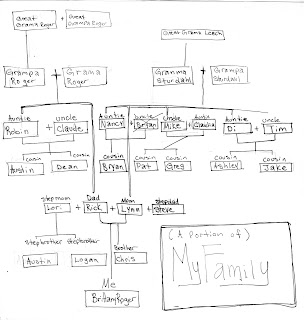 Great Grampa Roger + Great Grama Roger
Great Grama Leach
Grampa Roger + Grama Roger
Gramma Sturdahl + Grampa Sturdahl
Auntie Robin + uncle Claude
Auntie Nancy + uncle Bryan
uncle Mike + Auntie Claudia
Auntie Di + uncle Tim
cousin Austin
cousin Dean
cousin Bryan
cousin Pat
cousin Greg
cousin Ashley
cousin Jake
stepmom Lori + Dad Rick + Mom Lynn + stepdad Steve
Stepbrother Austin
stepbrother Logan
Brother Chris
Me
Brittany Roger
(A Portion of)
My Family